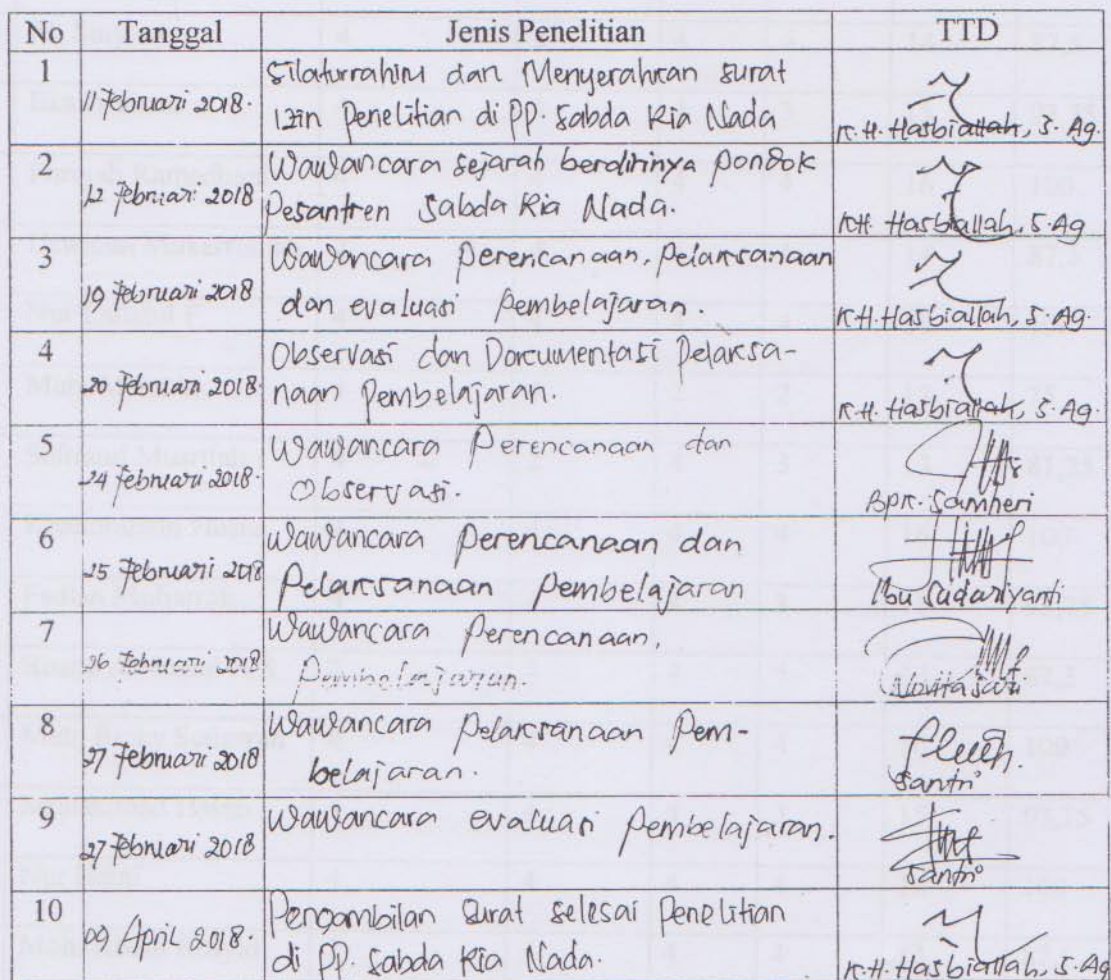 No Tanggal Jenis Penelitian TTD
1
11 Februari 2018.
Silaturrahim dan Menyerahkan Surat
Izin Penelitian di PP. Sabda Ria Nada
K.H. Hasbiallah, S.Ag.
2
12 Februari 2018
Wawancara sejarah berdirinya pondok
Pesantren Sabda Ria Nada.
KH. Hasbiallah, S.Ag
3
19 Februari 2018
Wawancara perencanaan, pelaksanaan
dan evaluasi pembelajaran.
K.H. Hasbiallah, S.Ag.
4
20 Februari 2018.
Observasi dan Dokumentasi pelaksa-
naan pembelajaran.
K.H. Hasbiallah, S.Ag.
5
24 Februari 2018.
Wawancara Perencanaan dan
Observasi.
Bpk. Samheri
6
25 Februari 2018
Wawancara perencanaan dan
Pelaksanaan pembelajaran
Ibu Sudariyanti
7
26 Februari 2018
Wawancara perencanaan.
Pembelajaran.
Novita Sari
8
27 Februari 2018
Wawancara pelaksanaan Pem-
belajaran.
Santri
9
27 Februari 2018
Wawancara evaluasi pembelajaran.
Santri
10
09 April 2018.
Pengambilan Surat selesai Penelitian
di PP. Sabda Ria Nada.
K.H. Hasbiallah, S.Ag